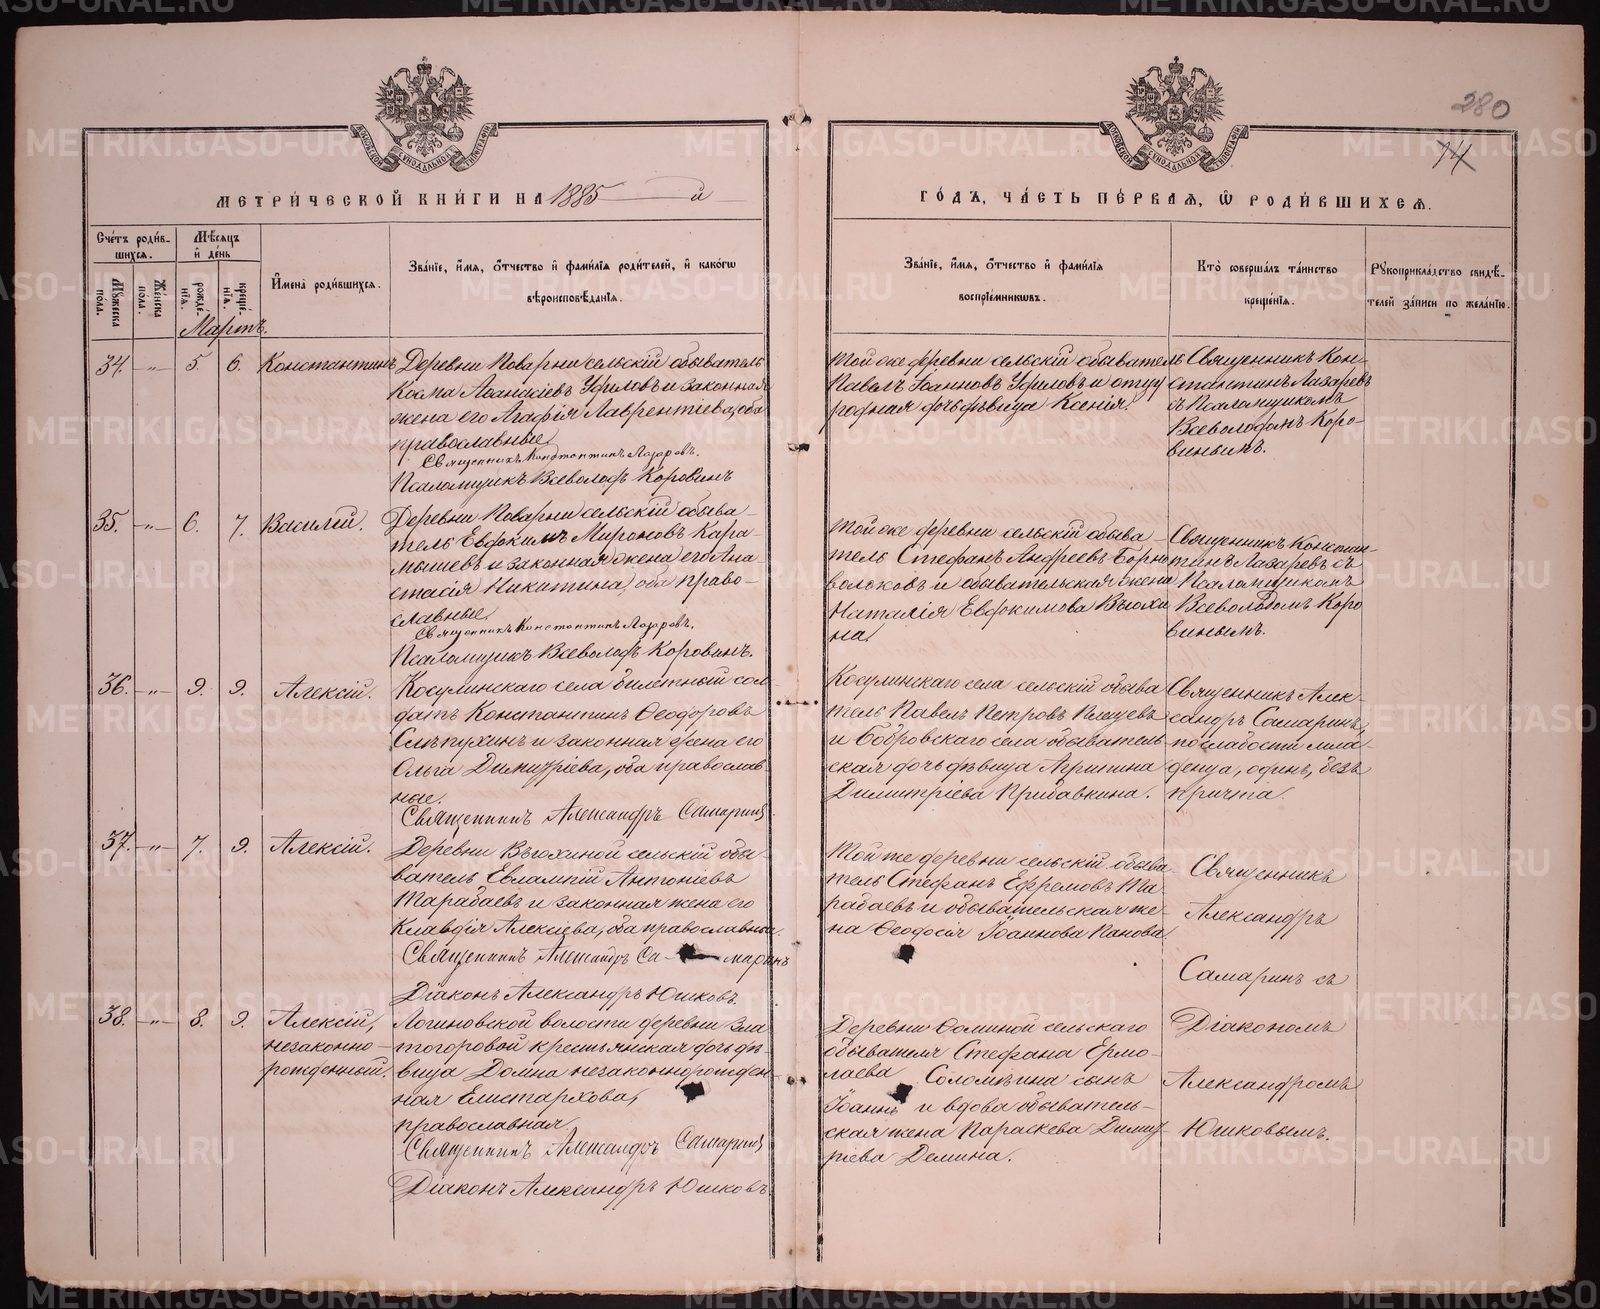 280
14
МЕТРИ́ЧЕСКОЙ КНИ́ГИ НА 1885 й
ГО́ДЪ, ЧА́СТЬ ПЕ́РВАЯ, Ѿ РОДИ́ВШИХСЯ.
Сче́тъ роди́в-
шихся.
Мѣ́сяцъ
и҆ де́нь
Мужеска по́ла.
Же́нска по́ла.
рожде́нїя.
креще́нїя.
И҆мена̀ роди́вшихся.
Зва́нїе, и҆́мя, ѻ҆́тчество и҆ фами́лїя роди́телей, и҆ како́гѡ
вѣроисповѣ́данїя.
Зва́нїе, и҆́мя, ѻ҆́тчество и҆ фами́лїя
воспрїе́мникѡвъ.
Кто̀ соверша́лъ та́инство
креще́нїя.
Рꙋкоприкла́дство свидѣ́-
телей за́писи по жела́нїю.
Мартъ.
34. -"- 5. 6. Константинъ
Деревни Поварни сельскій обыватель
Косма Аѳанасіевъ Уфиловъ и законная
жена его Агафія Лаврентіева, оба
православные.
Священникъ Константинъ Лазаревъ.
Псаломщикъ Всеволодъ Коровинъ
Той же деревни сельскій обыватель
Павелъ Іоанновъ Уфиловъ и
родная дочь дѣвица Ксенія.
Священникъ Кон-
стантинъ Лазаревъ
съ Псаломщикомъ
Всеволодомъ Коро-
винымъ.
35. -"- 6. 7. Василій.
Деревни Поварни сельскій обыва-
тель Евдокимъ Мироновъ Кара-
мышевъ и законная жена его Ана-
стасія Никитина, оба право-
славные.
Священникъ Константинъ Лазаревъ.
Псаломщикъ Всеволодъ Коровинъ.
Той же деревни сельскій обыва
тель Стефанъ Андреевъ Борно
волоковъ и обывательская жена
Наталія Евдокимова Вьюхи
на.
Священникъ Констан-
тинъ Лазаревъ съ
Псаломщикомъ
Всеволодомъ Коро
винымъ.
36. -"- 9. 9. Алексій.
Косулинскаго села билетный сол
датъ Константинъ Ѳеодоровъ
Слѣпухинъ и законная жена его
Ольга Димитріева, оба православ-
ные.
Священникъ Александръ Самаринъ
Косулинскаго села сельскій обыва
тель Павелъ Петровъ
и Бобровскаго села обыватель-
ская дочь дѣвица Агрипина
Димитріева Прибавкина.
Священникъ Алек-
сандръ Самаринъ,
по слабости мла-
денца, одинъ, безъ
причта.
37. -"- 7. 9. Алексій.
Деревни Вьюхиной сельскій обы-
ватель Евлампій Антоніевъ
Тарабаевъ и законная жена его
Клавдія Алексіева, оба православные.
Священникъ Александръ Са- маринъ
Діаконъ Александръ Юшковъ.
Той же деревни сельскій обыва
тель Стефанъ Ефремовъ Та-
рабаевъ и обывательская же-
на Ѳеодосія Іоаннова Панова.
Священникъ
Александръ
Самаринъ съ
Діакономъ
Александромъ
Юшковымъ.
38. -"- 8. 9. Алексій,
незаконно-
рожденный.
Логиновской волости деревни Зла
тогоровой крестьянская дочь дѣ-
вица Домна незаконнорожден-
ная Елистархова,
православная
Священникъ Александръ Самаринъ
Діаконъ Александръ Юшковъ.
Деревни Ѳоминой сельскаго
обывателя Стефана Ермо-
лаева Соломѣина сынъ
Іоаннъ и вдова обыватель-
ская жена Параскева Димит
ріева Демина.